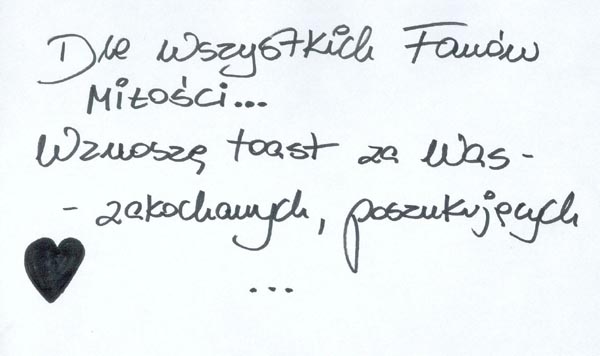 Dla wszystkich Fanów
Miłości...
Wznoszę toast za Was -
- zakochanych, poszukujących
...